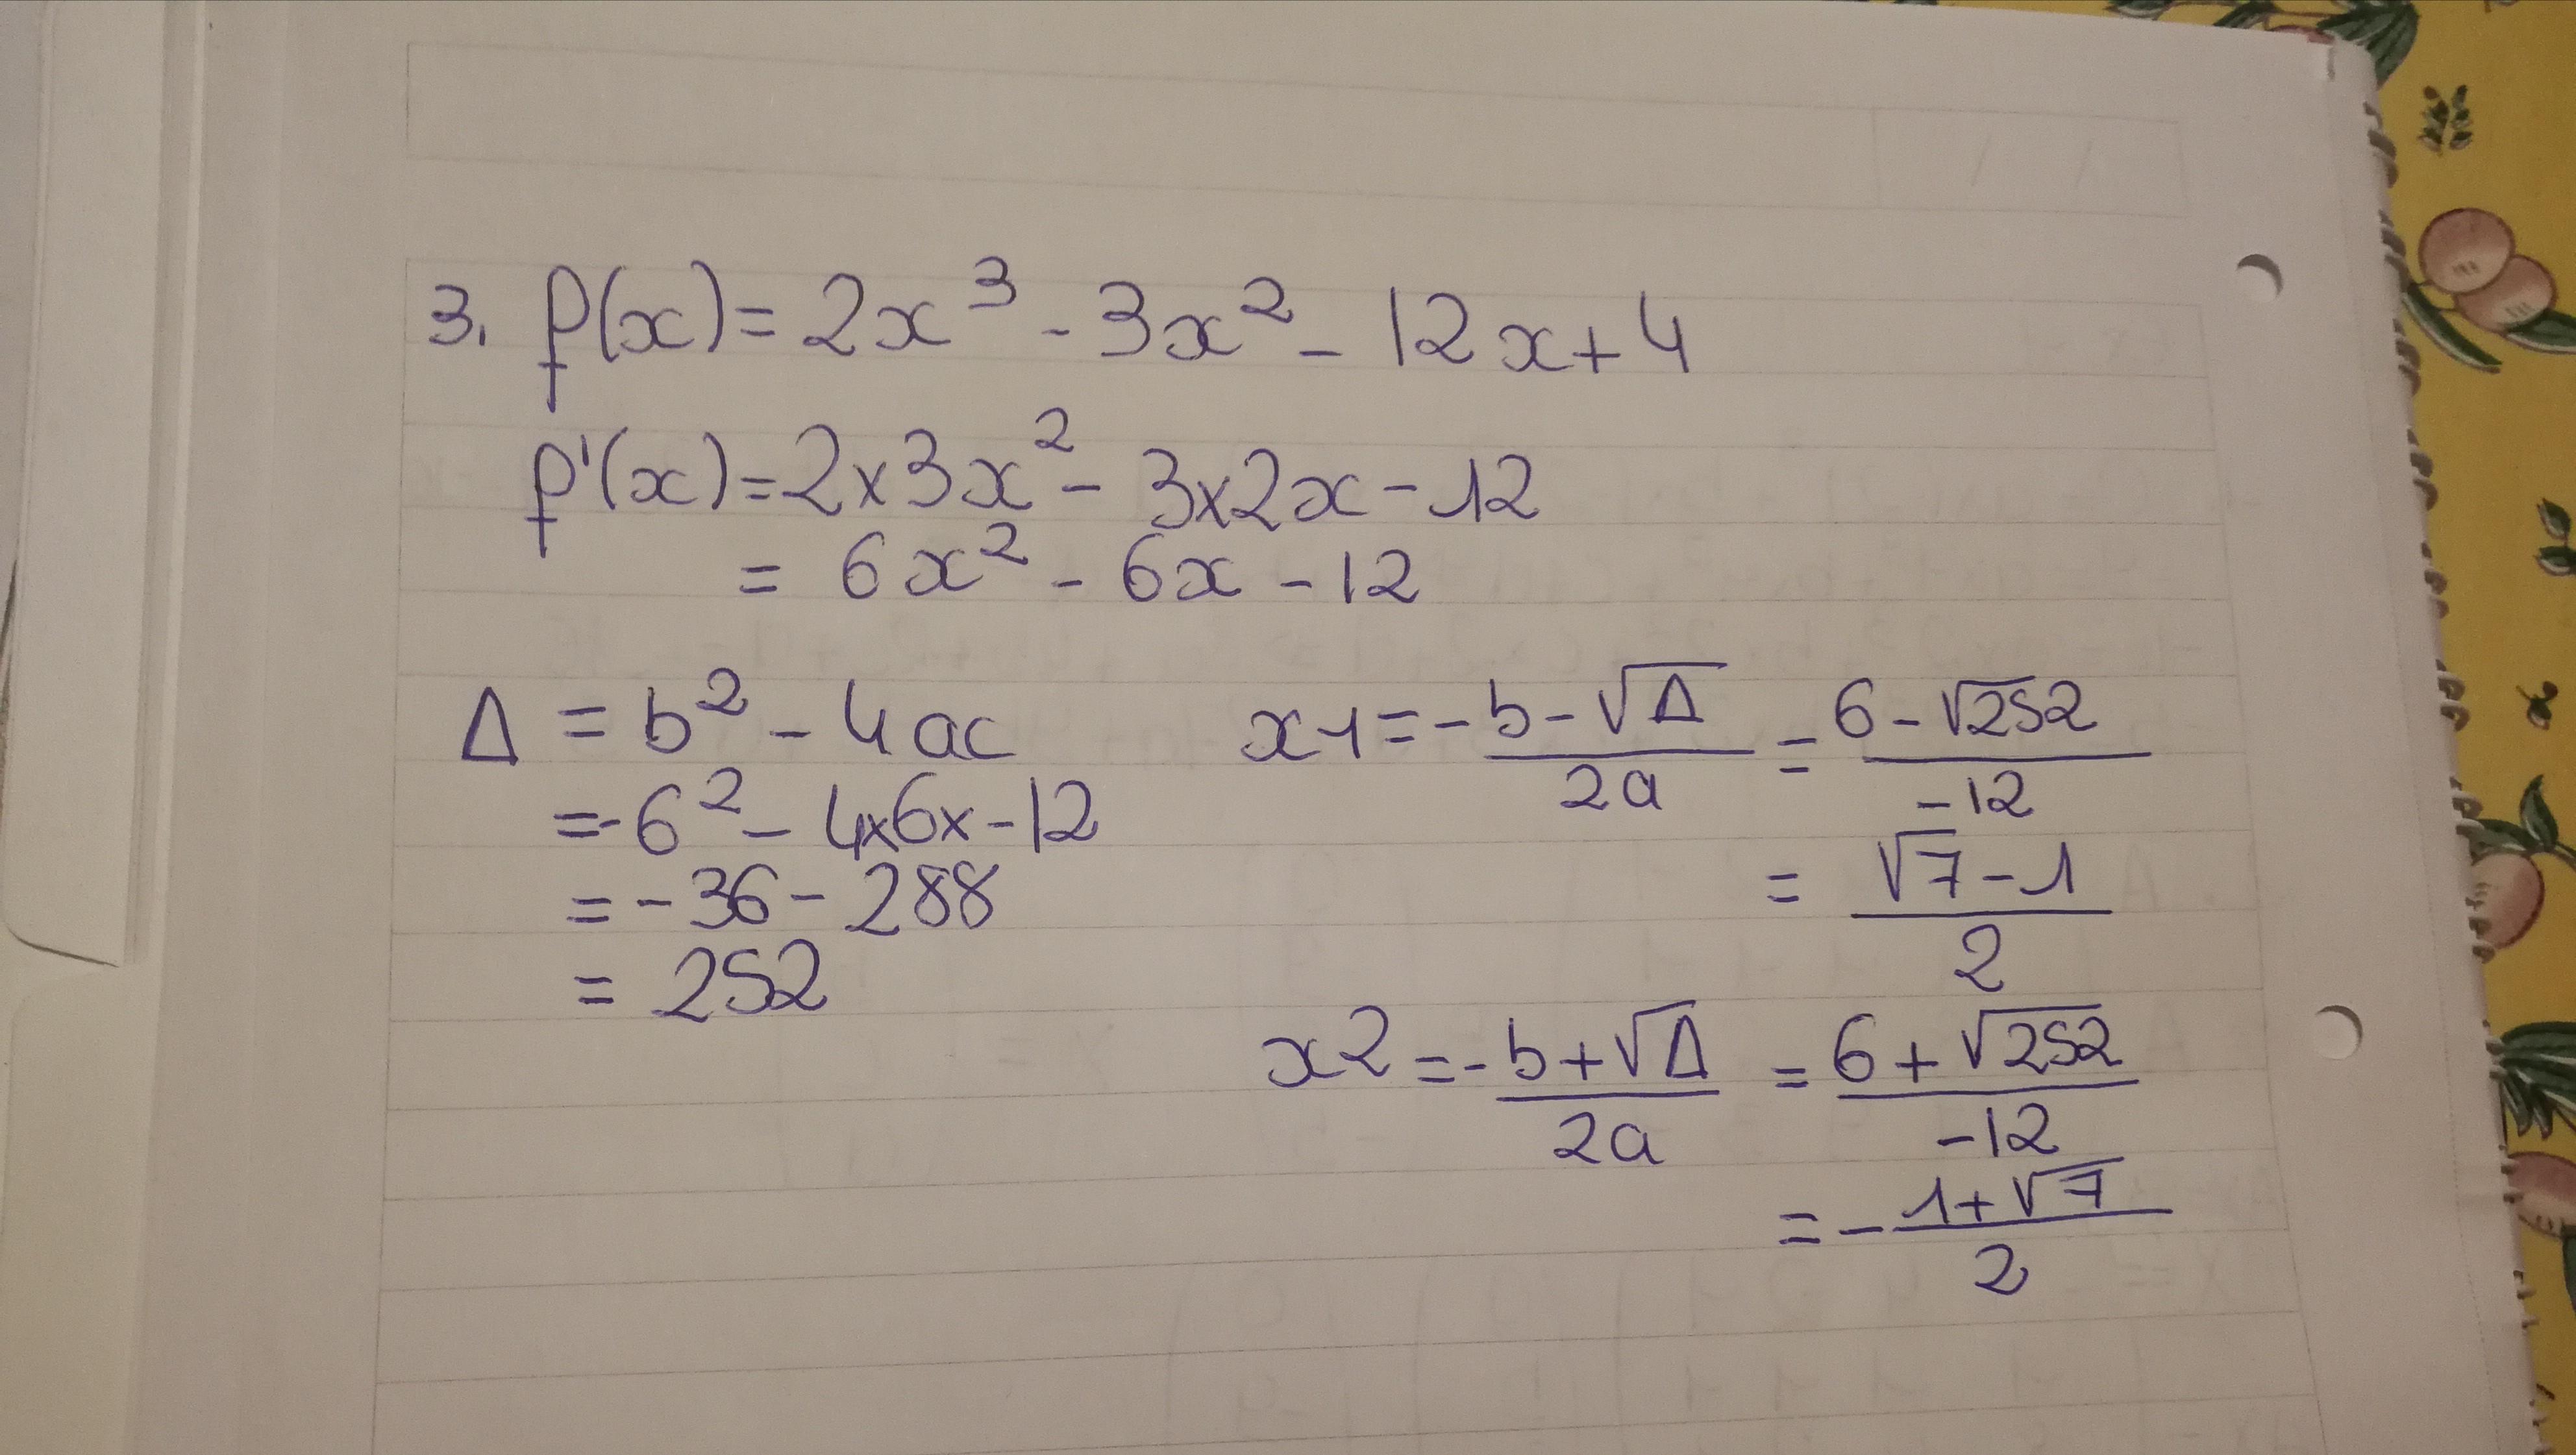 3. f(x) = 2x³ - 3x² - 12x + 4
f'(x) = 2x3x² - 3x2x - 12
= 6x² - 6x - 12
Δ = b² - 4ac
= -6² - 4x6x-12
= -36 - 288
= 252
x1 = -b-√Δ / 2a = 6-√252 / -12
= √7-1 / 2
x2 = -b+√Δ / 2a = 6+√252 / -12
= - 1+√7 / 2